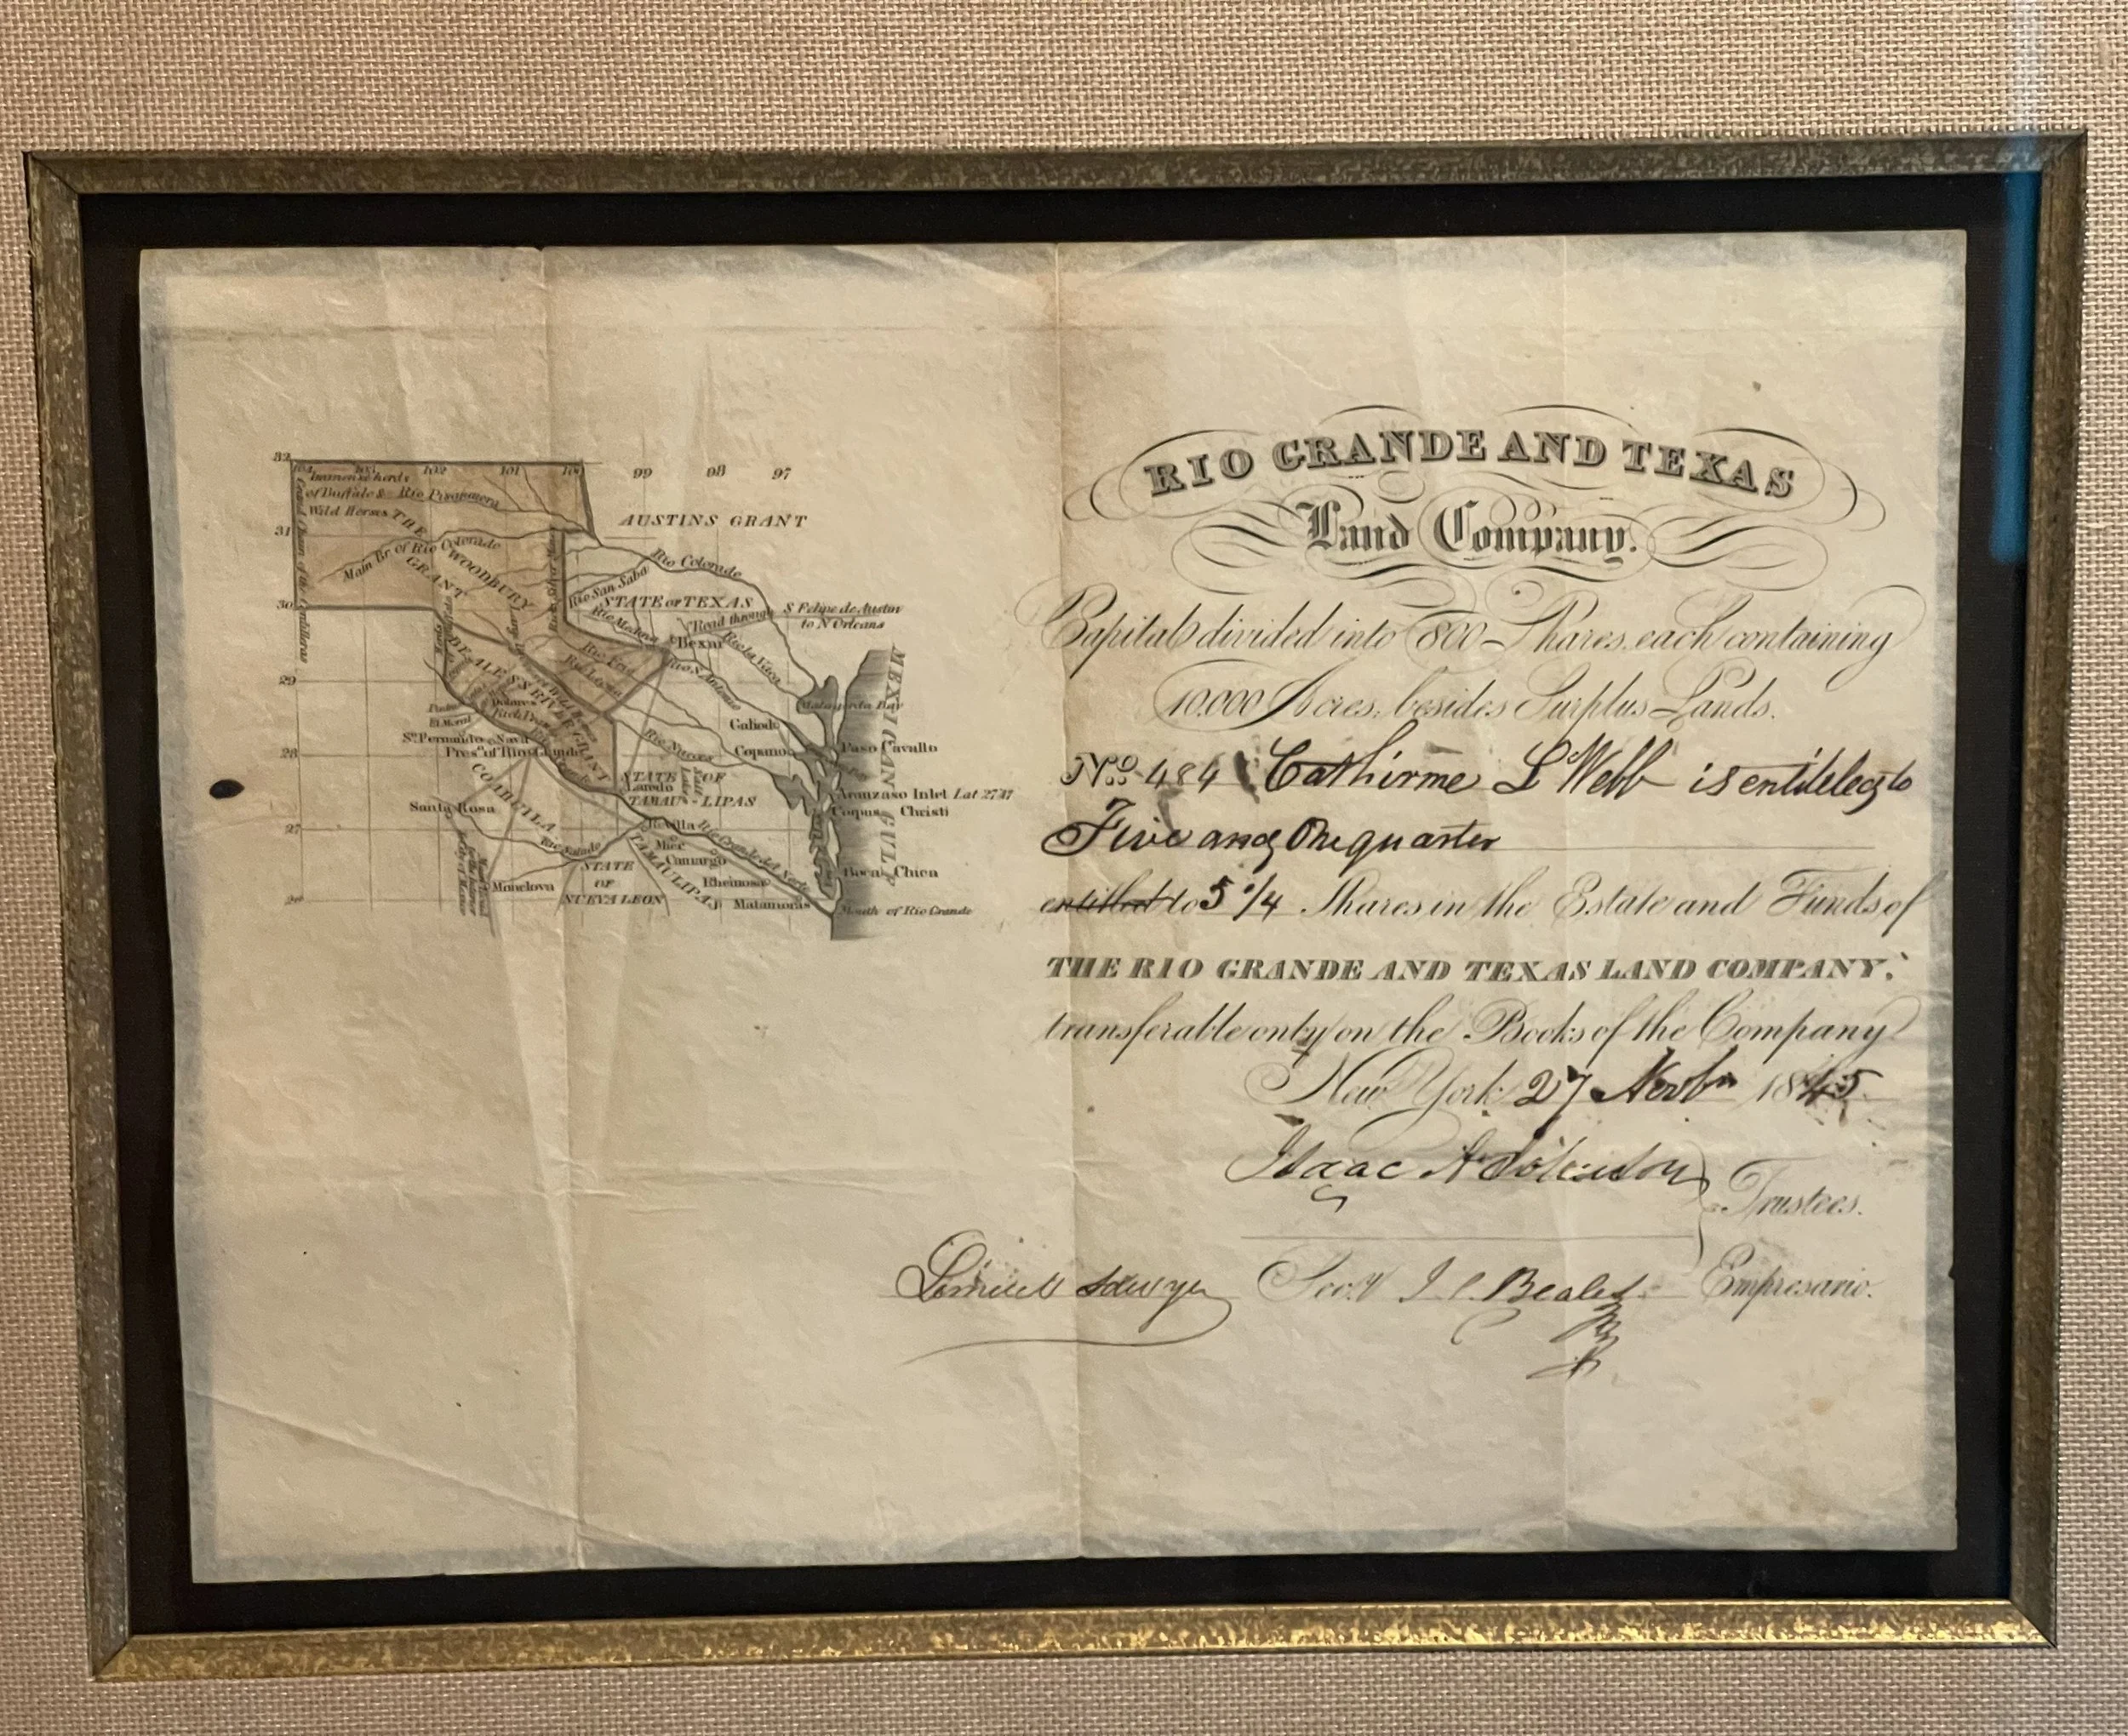 32
104 103 102 101 100 99 98 97
Immense herds
of Buffalo &
Wild Horses
Rio
THE WOODBURY GRANT
AUSTINS GRANT
31
Main Br. of Rio Colorado
Rio Colorado
Rio San Saba
STATE OF TEXAS
30
Rio Medina
Road through
S Felipe de Austin
to N Orleans
Bexar
Rio la Vaca
Rio S. Antonio
Rio Frio
BEALES'S RIVER GRANT
29
Dolores
Matagorda Bay
MEXICAN GULF
Galiod
Rio Nueces
Copano
Paso Cavallo
Sn. Fernando
Nava
Presº of Rio Grande
28
STATE OF
Laredo
TAMAU - LIPAS
Aranzaso Inlet Lat 27 37
Corpus Christi
COAHUILA
Santa Rosa
27
Revilla
Rio Grande del Norte
Rio Salado
Mier
Camargo
TAMAULIPAS
STATE
OF
NUEVA LEON
Monclova
Rheinosa
Boca Chica
Matamoras
Mouth of Rio Grande
RIO GRANDE AND TEXAS
Land Company.
Capital divided into 800 Shares, each containing
10.000 Acres, besides Surplus Lands.
No. 484 Cathirine L Webb is entitled to
Five and One quarter
entitled to 5 1/4 Shares in the Estate and Funds of
THE RIO GRANDE AND TEXAS LAND COMPANY.
transferable only on the Books of the Company
New York 27 Novbr 1845
Isaac A
Trustees.
Lemuel Sawyer Secy J C Beales Empresario.